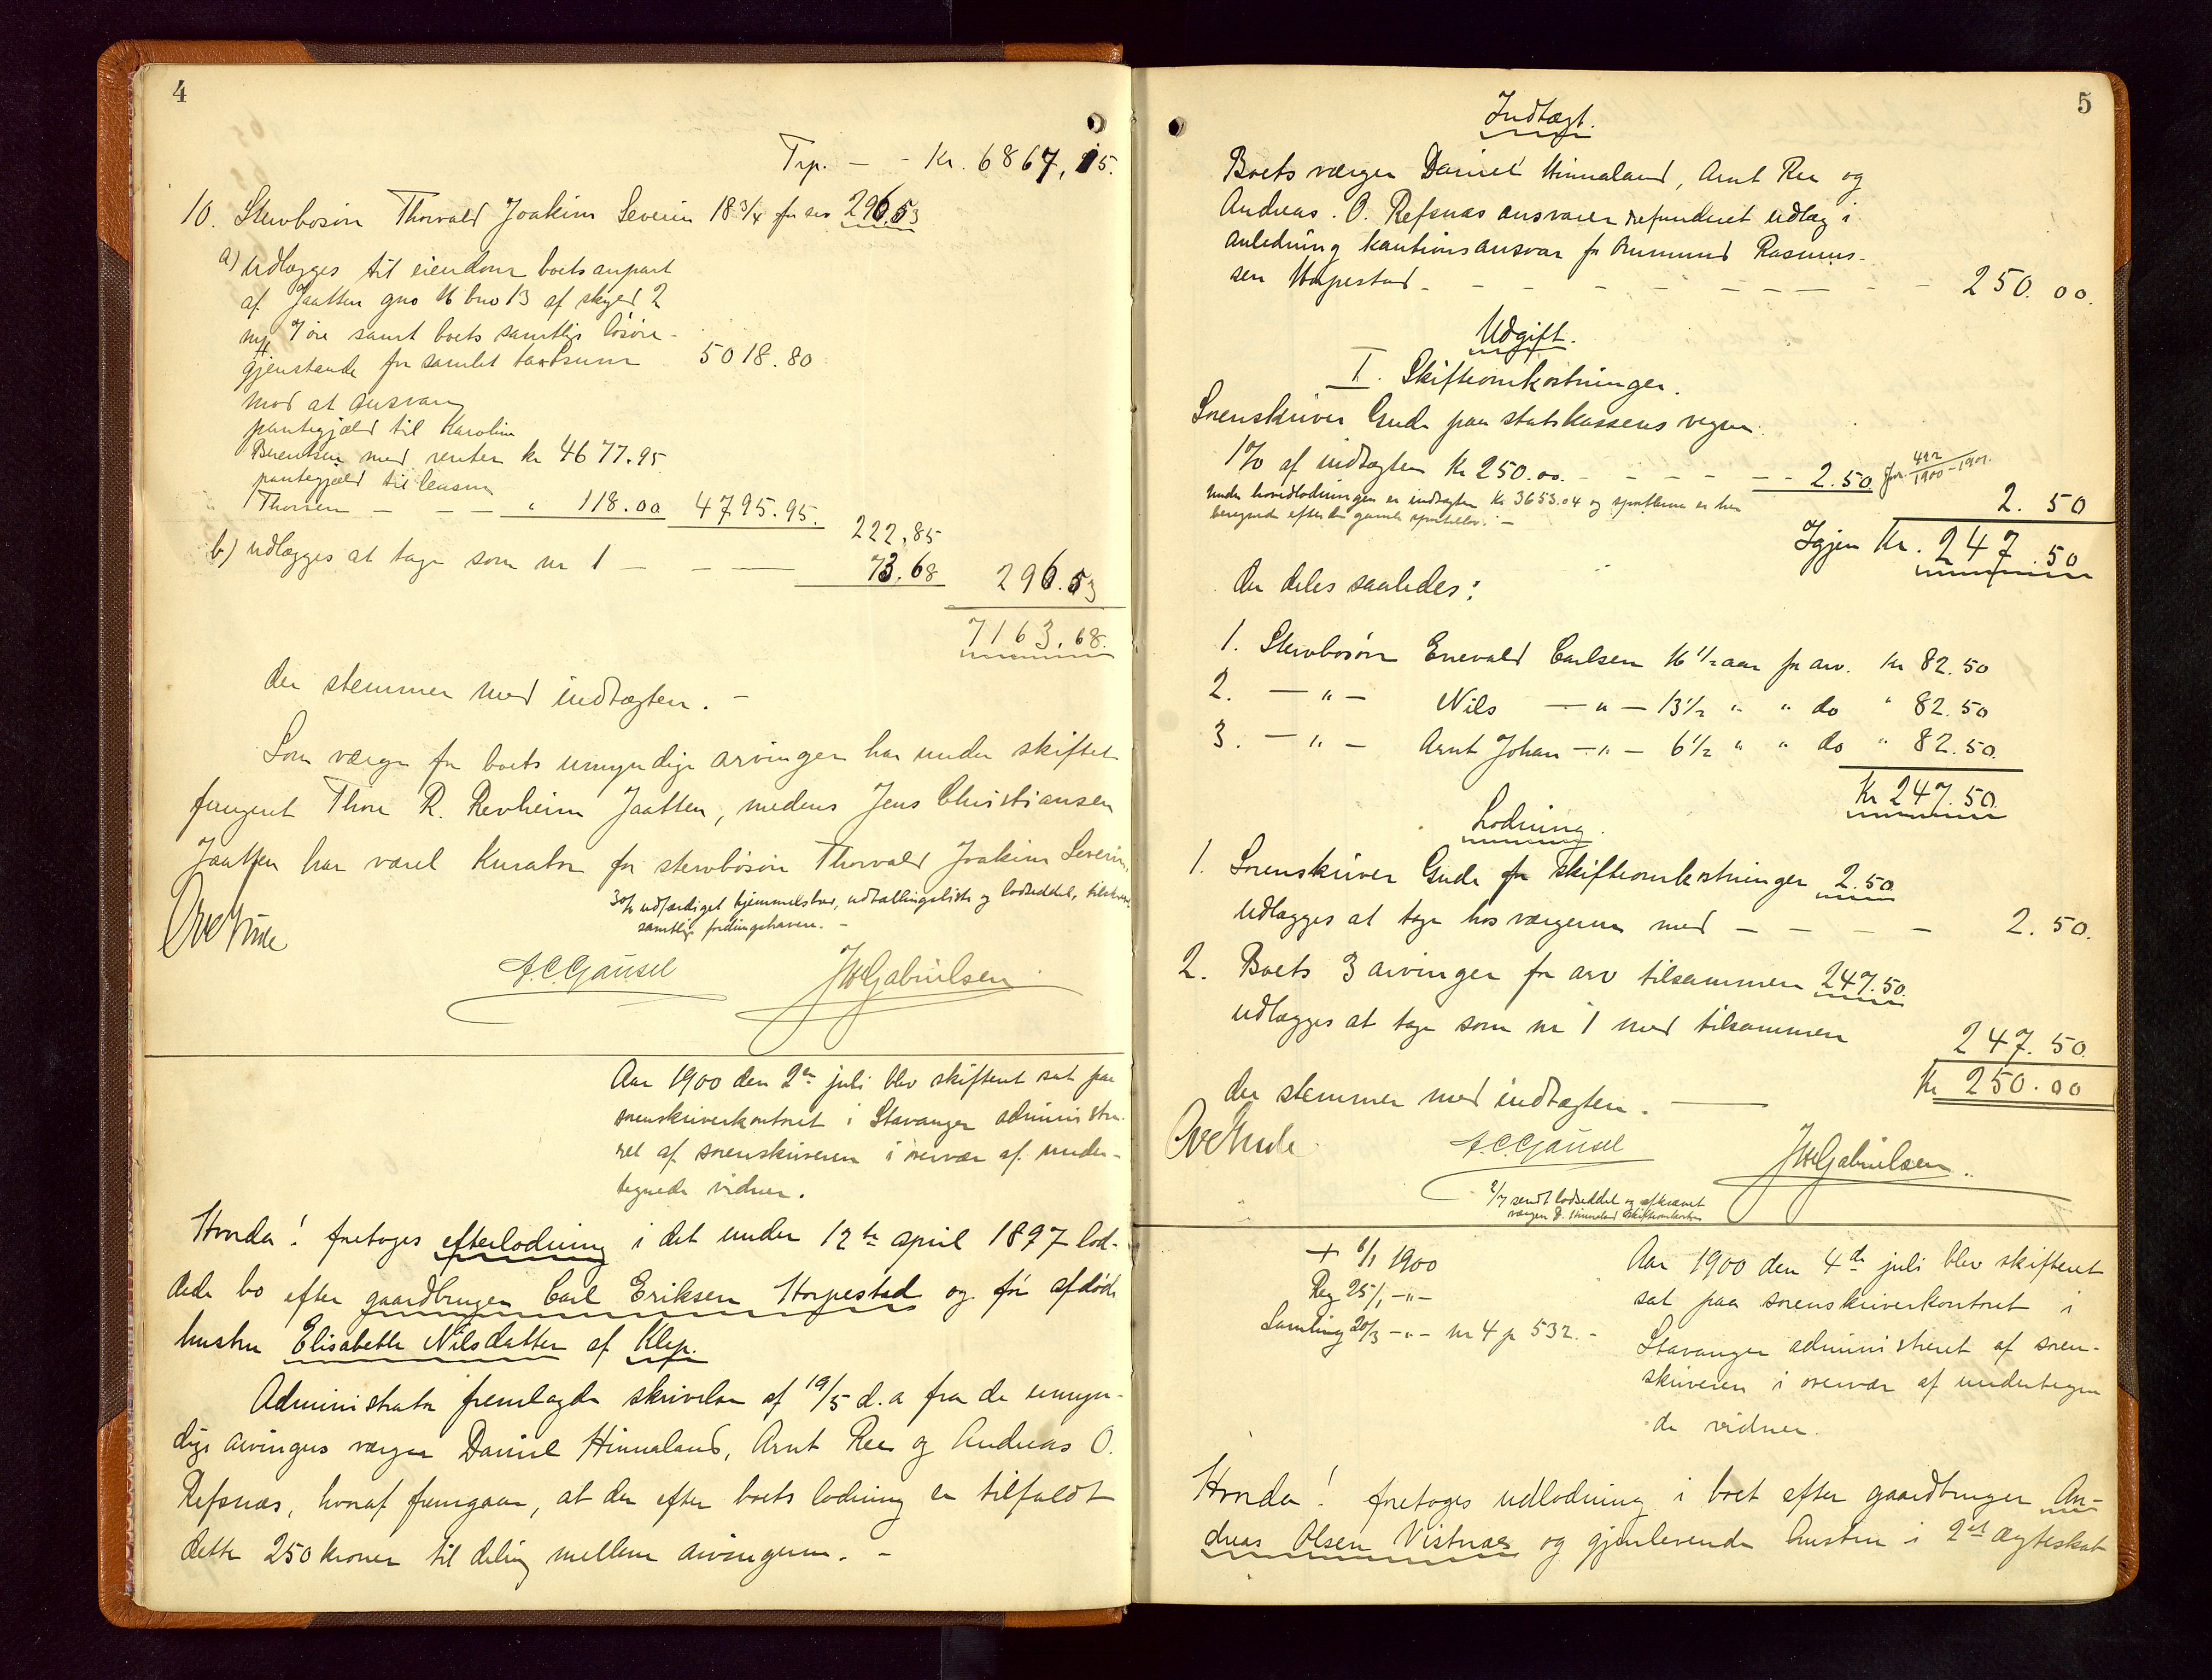 4
Trp. — - Kr. 6867,15.
10. Stervbosøn Thorvald Joakim Severin 18 3/4 for arv 296.53
a) udlægges til eiendom boets anpart
af Jaatten gno 16 bno 13 af skyld 2
mk 7 øre samt boets samtlige løsøre-
gjenstande for samlet taxtsum 5018.80
mod at ansvare
pantegjæld til Karoline
Berentsen med renter kr 4677.95
pantegjæld til
Thorsen — — — " 118.00 4795.95.
222,85
b) udlægges at tage som nr 1 — — — 73.68 296.53
7163,68.
der stemmer med indtægten. —
Som værge for boets umyndige arvinger har under skiftet
fungeret Thore R. Revheim Jaatten, medens Jens Christiansen
Jaatten har været Kurator for stervbosøn Thorvald Joakim Severin.
udfærdiget hjemmelsbrev, udtællingsliste og lodseddel,
samtlige fordringshavere. —
Ove Gude
A.C. Gausel JWGabrielsen
Aar 1900 den 2den juli blev skifteret sat paa
sorenskriverkontoret i Stavanger administre-
ret af sorenskriveren i overvær af under-
tegnede vidner.
Hvorda! foretoges efterlodning i det under 12te april 1897 lod-
dede bo efter gaardbruger Carl Eriksen Horpestad og før afdøde
hustru Elisabeth Nilsdatter af Klep.
Administrator fremlagde skrivelse af 19/5 d.a fra de umyn-
dige arvingers værger Daniel Hinnaland, Arnt Ree og Andreas O.
Refsnæs, hvoraf fremgaar, at der efter boets lodning er tilfaldt
dette 250 kroner til deling mellem arvingerne. —
5
Indtægt.
Boets værger Daniel Hinnaland, Arnt Ree og
Andreas. O. Refsnæs ansvarer refunderet udlæg i
anledning kautionsansvar for Ommund Rasmus-
sen Horpestad - - - - - - - - 250.00.
Udgift.
I. Skifteomkostninger.
Sorenskriver Gude paa statskassens vegne.
1% af indtægten Kr 250.00. - - - - - 2.50 Jnr. 422/1900-1901.
Under hovedlodningen er indtægten kr 3653.04 og sportlerne er her
beregnede efter den gamle sportellov. —
2.50
Igjen Kr. 247.50
der deles saaledes:
1. Stervbosøn Enevald Carlsen 16 1/2 aar for arv. Kr 82.50
2. — " — Nils — " — 13 1/2 " " do " 82.50
3. — " — Arnt Johan — " — 6 1/2 " " do " 82.50.
Kr 247.50.
Lodning.
1. Sorenskriver Gude for skifteomkostninger 2.50
udlægges at tage hos værgerne med — — — — 2.50.
2. Boets 3 arvinger for arv tilsammen 247.50.
udlægges at tage som nr 1 med tilsammen 247.50
Kr 250.00
der stemmer med indtægten. —
Ove Gude
A.C. Gausel JWGabrielsen
2/7 sendt lodseddel og afkrævet
værgen D. Hinnaland skifteomkostn.
+ 6/1 1900
Reg 25/1 - " -
Samling 20/3 - " - nr 4 p 532. -
Aar 1900 den 4de juli blev skifteret
sat paa sorenskriverkontoret i
Stavanger administreret af soren-
skriveren i overvær af undertegne
de vidner.
Hvorda! foretoges udlodning i boet efter gaardbruger An-
dreas Olsen Vistnæs og gjenlevende hustru i 2det ægteskab